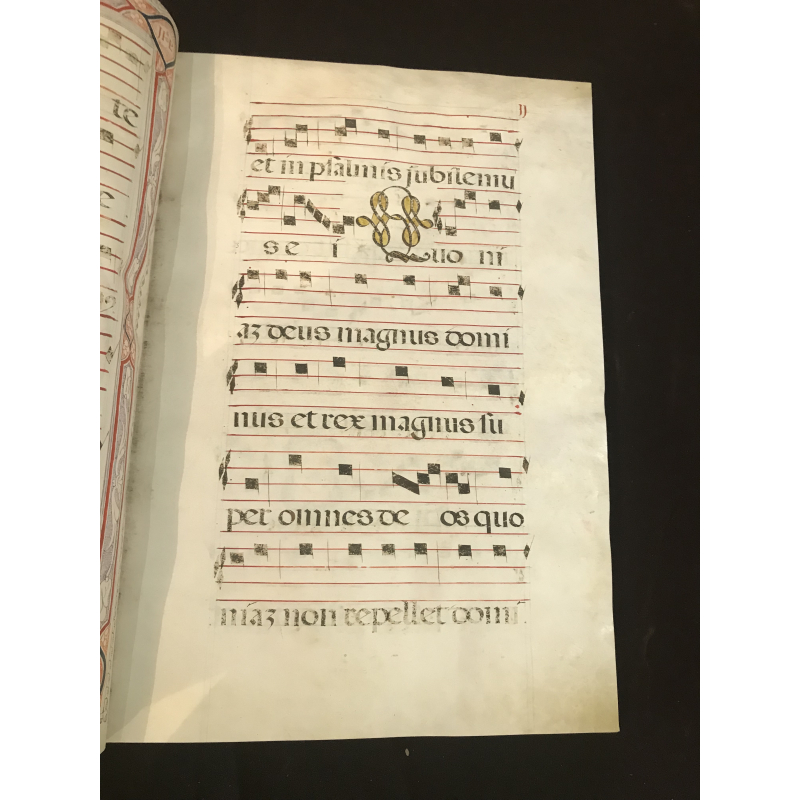 II
et in psalmis jubilemu
se i Quo ni
aʒ deus magnus domi
nus et rex magnus su
per omnes de os quo
niaʒ non repellet domi
te